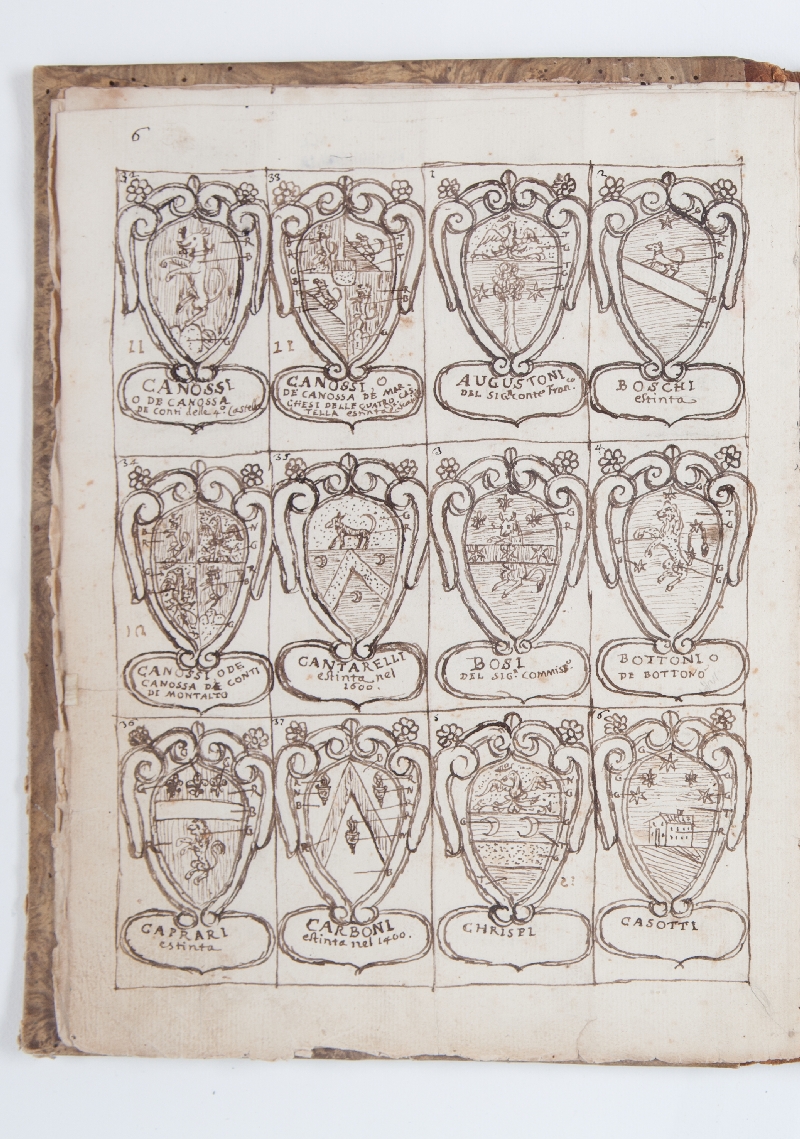 6
38
1
2
11
11
CANOSSI
O DE CANOSSA
DE Conti delle 4º Castella
CANOSSI O
DE CANOSSA DE MAR-
CHESI DELLE QUATRO CAS-
TELLA estinta
AUGUSTONI
DEL SIGr Conte Franco
BOSCHI
estinta
34
35
3
4
CANOSSI O DE
CANOSSA DE CONTI
DI MONTALTO
CANTARELLI
estinta nel
1600.
BOSI
DEL SIGr COMMISSo
BOTTONI O
DE BOTTONO
36
37
5
6
CAPRARI
estinta
CARBONI
estinta nel 1400.
CHRISPI
CASOTTI